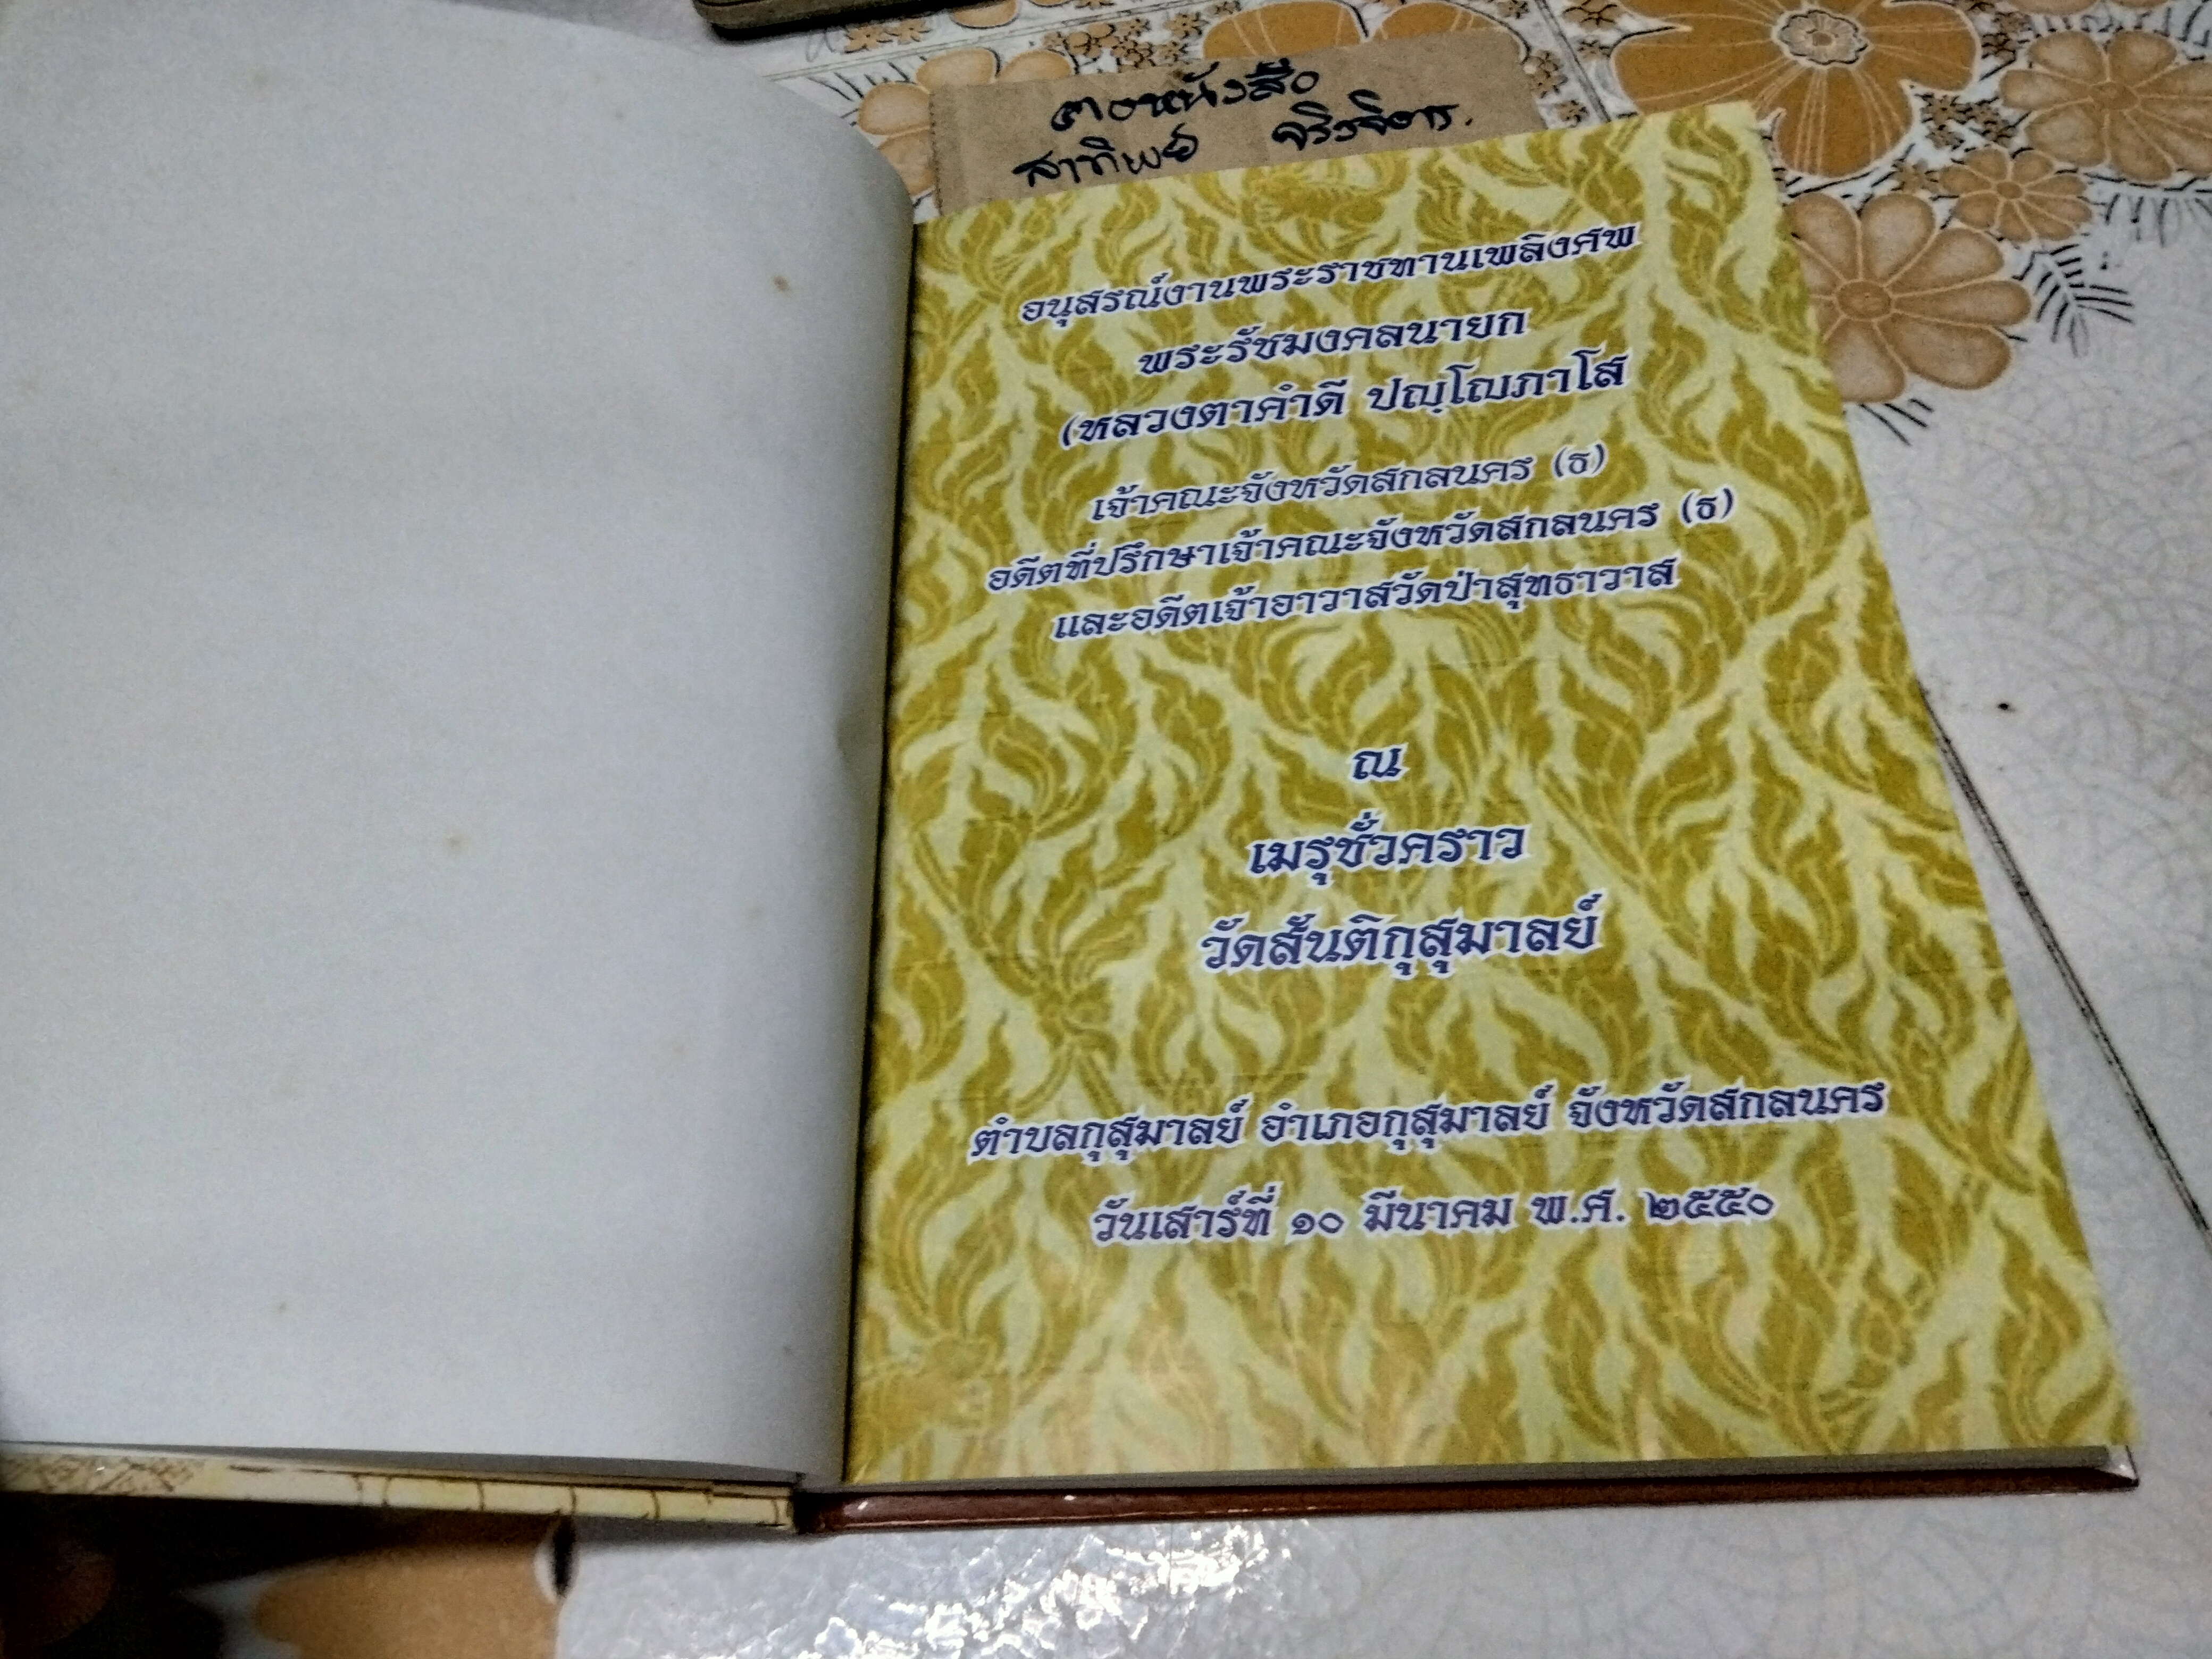 อนุสรณ์งานพระราชทานเพลิงศพ
พระรัชมงคลนายก
(หลวงตาคำดี ปญฺโญภาโส
เจ้าคณะจังหวัดสกลนคร (ธ)
อดีตที่ปรึกษาเจ้าคณะจังหวัดสกลนคร (ธ)
และอดีตเจ้าอาวาสวัดป่าสุทธาวาส
ณ
เมรุชั่วคราว
วัดสันติกุสุมาลย์
ตำบลกุสุมาลย์ อำเภอกุสุมาลย์ จังหวัดสกลนคร
วันเสาร์ที่ ๑๐ มีนาคม พ.ศ. ๒๕๕๐